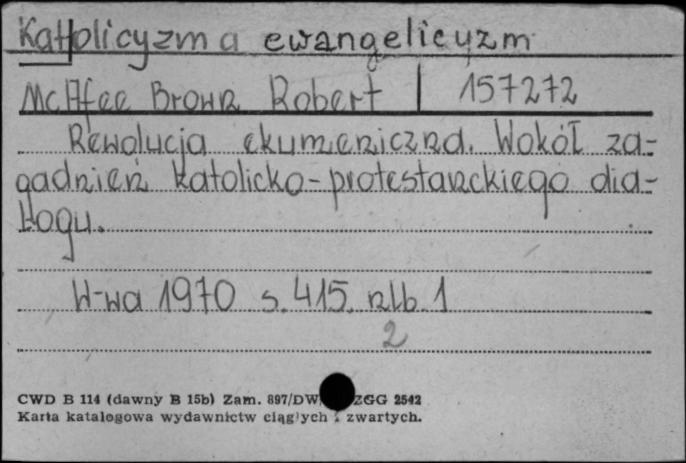 Katolicyzm a ewangelicyzm
McAfee Brown Robert | 157272
Rewolucja ekumeniczna. Wokół za-
gadnień katolicko-protestanckiego dia-
logu.
W-wa 1970 s. 415, nlb. 1
2
CWD B 114 (dawny B 15b) Zam. 897/DW ZGG 2542
Karta katalogowa wydawnictw ciągłych i zwartych.